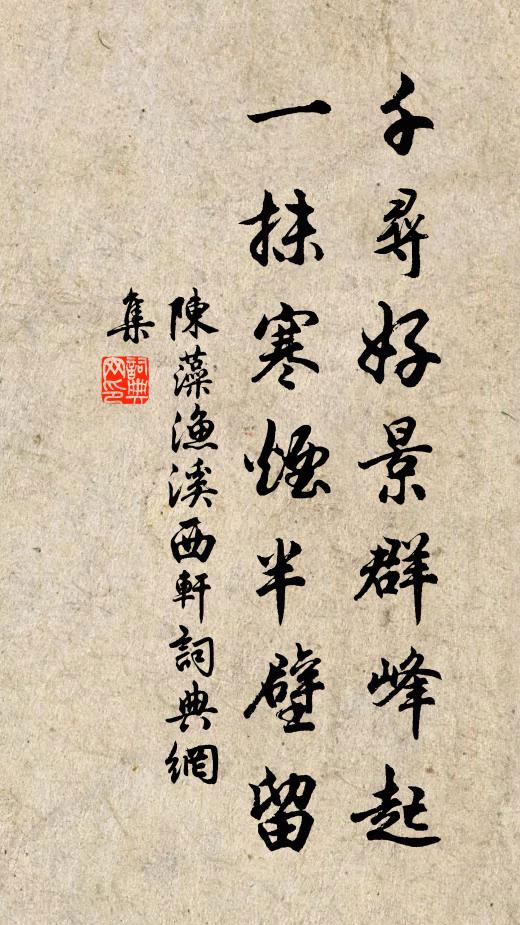 千尋好景群峰起
一抹寒煙半壁留
陳藻漁溪西軒詞典網
集
詞典網印